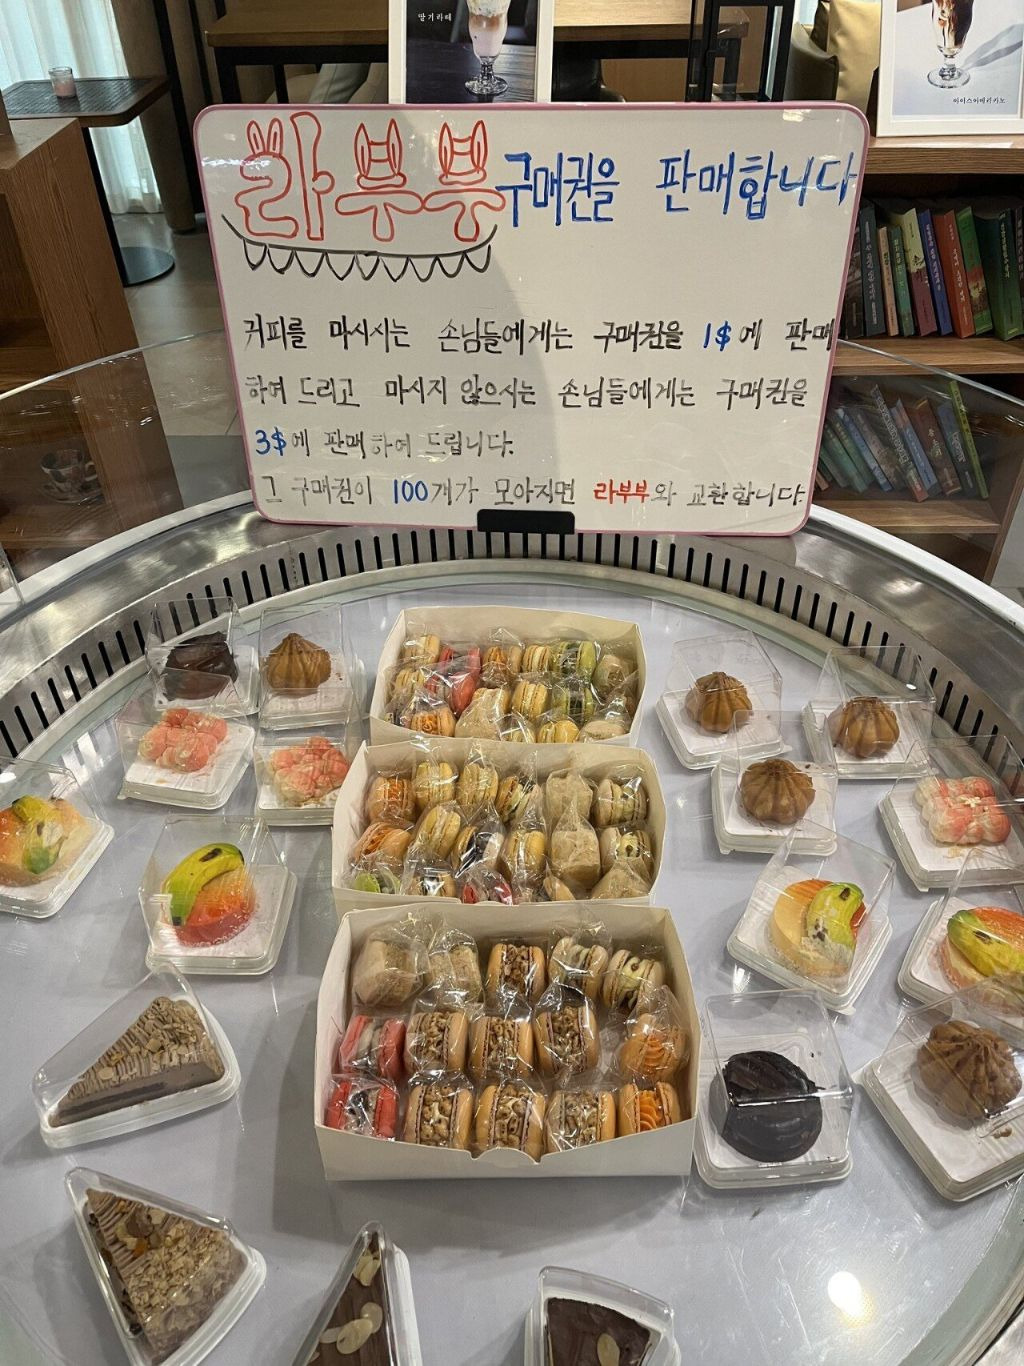 딸기라떼
아이스아메리카노
라부부 구매권을 판매합니다
커피를 마시시는 손님들에게는 구매권을 1$에 판매
하여 드리고 마시지 않으시는 손님들에게는 구매권을
3$에 판매하여 드립니다.
그 구매권이 100개가 모아지면 라부부와 교환합니다